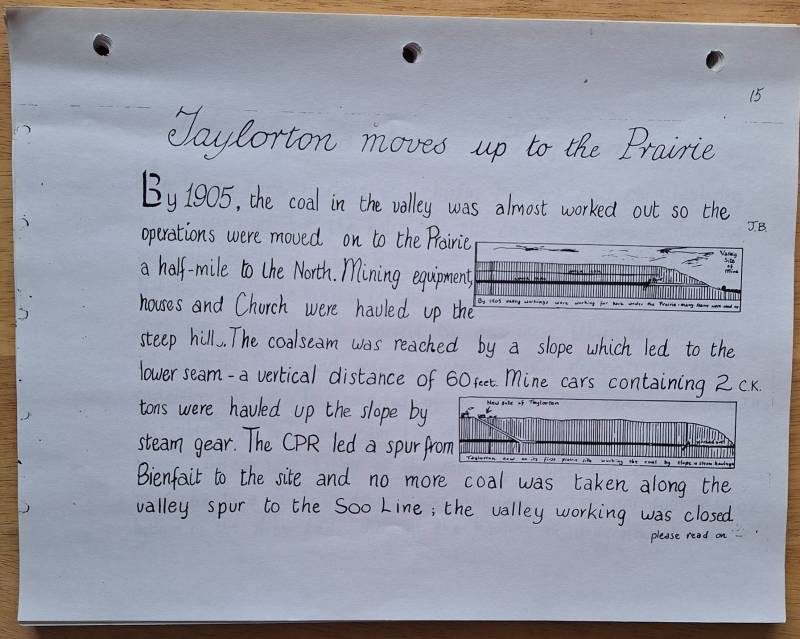 15
Taylorton moves up to the Prairie
By 1905, the coal in the valley was almost worked out so the
J.B.
operations were moved on to the Prairie
a half-mile to the North. Mining equipment,
houses and Church were hauled up the
Valley
Site
of
Mine
By 1905 valley workings were working far back under the Prairie - many
steep hill. The coalseam was reached by a slope which led to the
lower seam - a vertical distance of 60 feet. Mine cars containing 2 C.K.
tons were hauled up the slope by
steam gear. The CPR led a spur from
New site of Taylorton
Taylorton now on its first prairie site working the coal by slope & steam haulage
Bienfait to the site and no more coal was taken along the
valley spur to the Soo Line; the valley working was closed
please read on